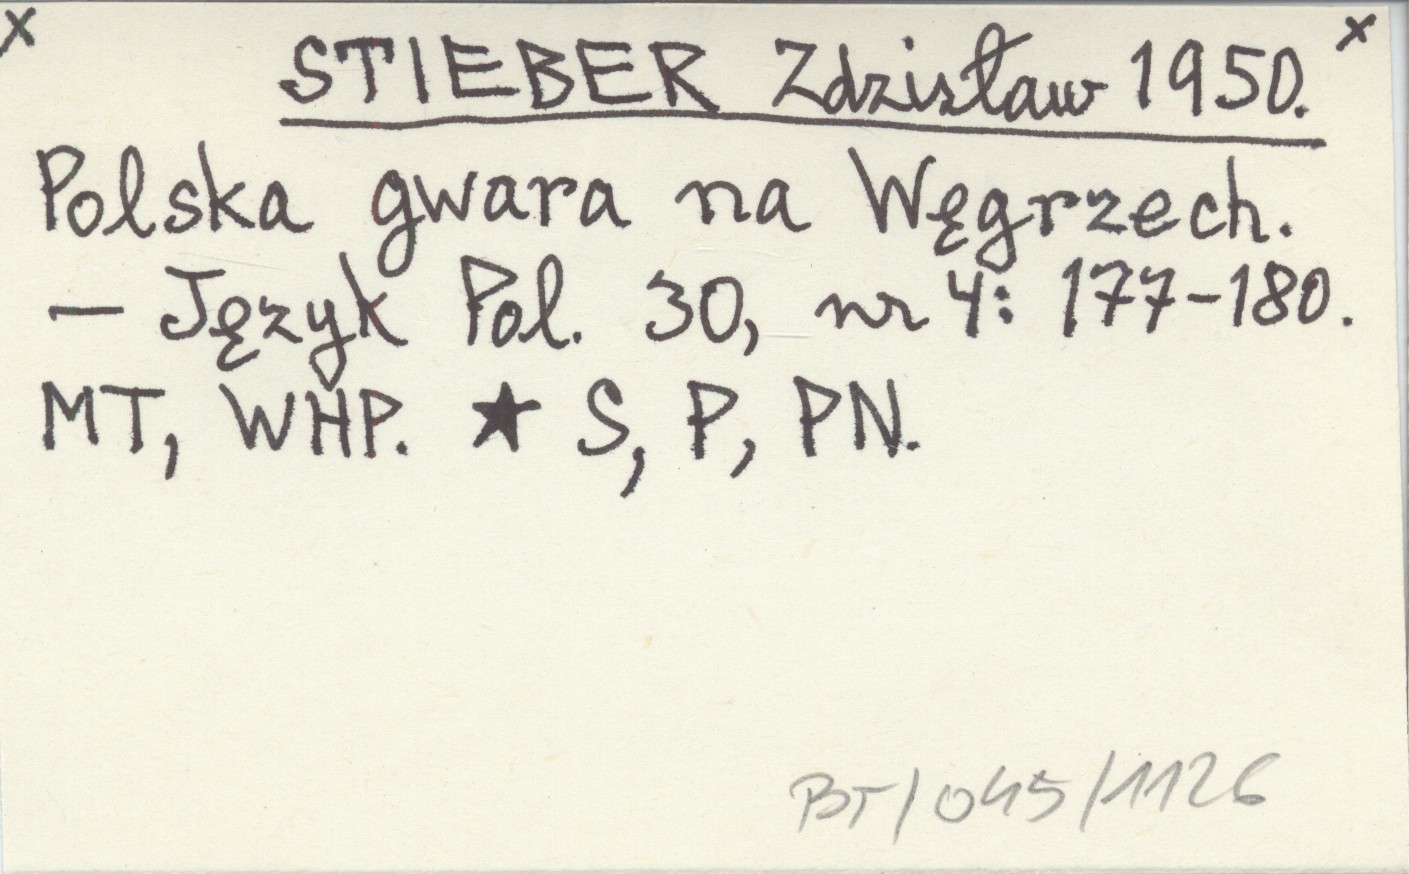 x x
STIEBER Zdzisław 1950.
Polska gwara na Węgrzech.
— Język Pol. 30, nr 4: 177-180.
MT, WHP. ★ S, P, PN.
BT/045/1126